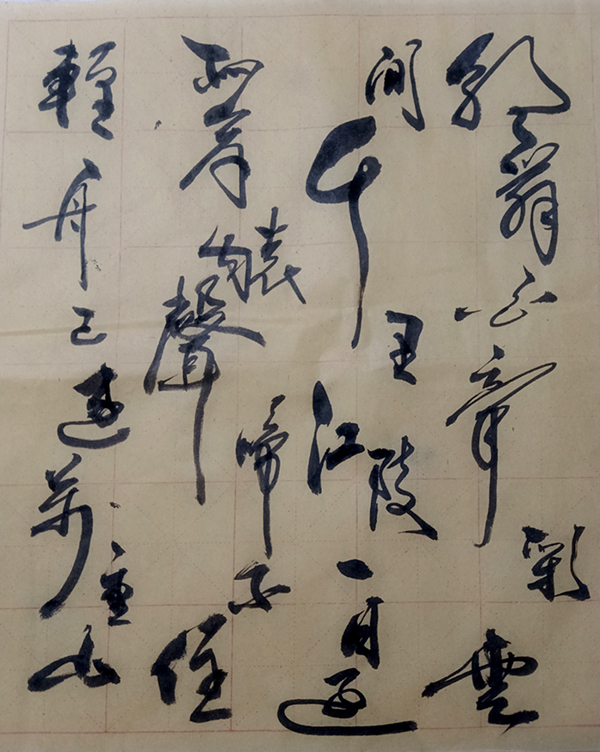 朝辭白帝彩雲
間千里江陵一日還
兩岸猿聲啼不住
輕舟已過萬重山